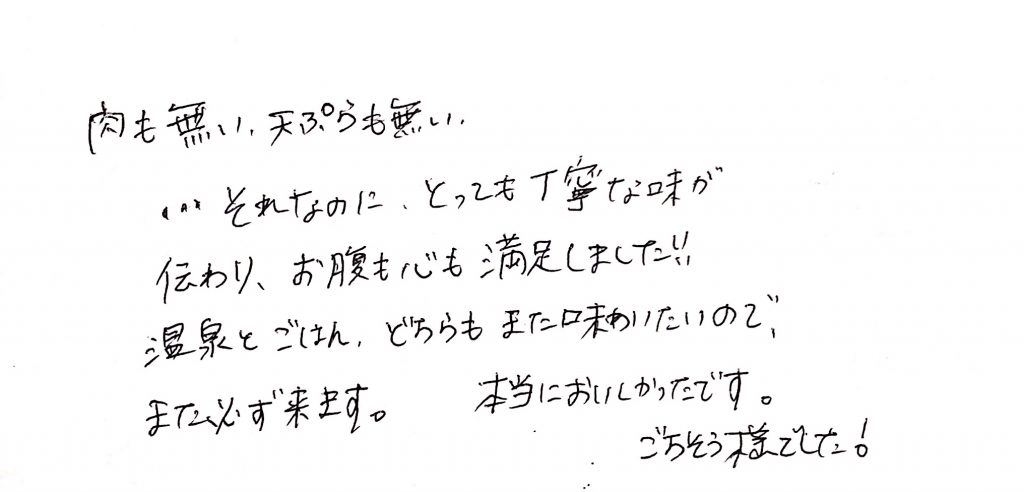 肉も無い、天ぷらも無い、
…それなのに、とっても丁寧な味が
伝わり、お腹も心も満足しました!!
温泉とごはん、どちらもまた味わいたいので、
また必ず来ます。 本当においしかったです。
ごちそう様でした!